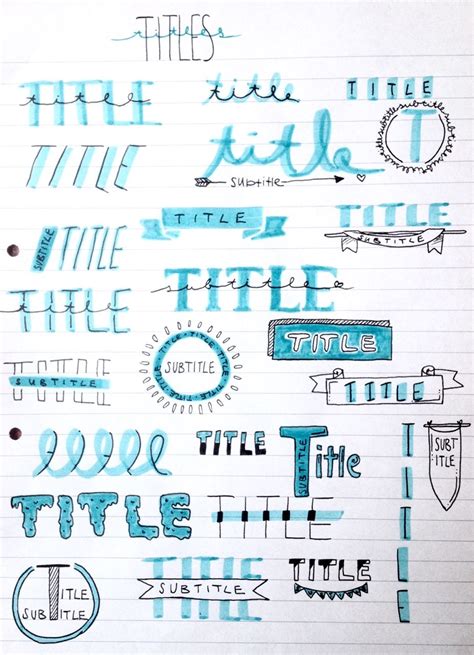 TITLES
titles
TITLE
title
title
TITLE
TITLE
title
subtitle
T
TITLE
TITLE
SUBTITLE
SUBTITLE
TITLE
TITLE
subtitle
TITLE
title
TITLE
TITLE
SUBTITLE
SUBTITLE
TITLE
TITLE
TITLE
Title
SUBTITLE
SUBT
ITLE
TITLE
TITLE
TITLE
TITLE
SUBTITLE
TITLE
TITLE
SUBTITLE